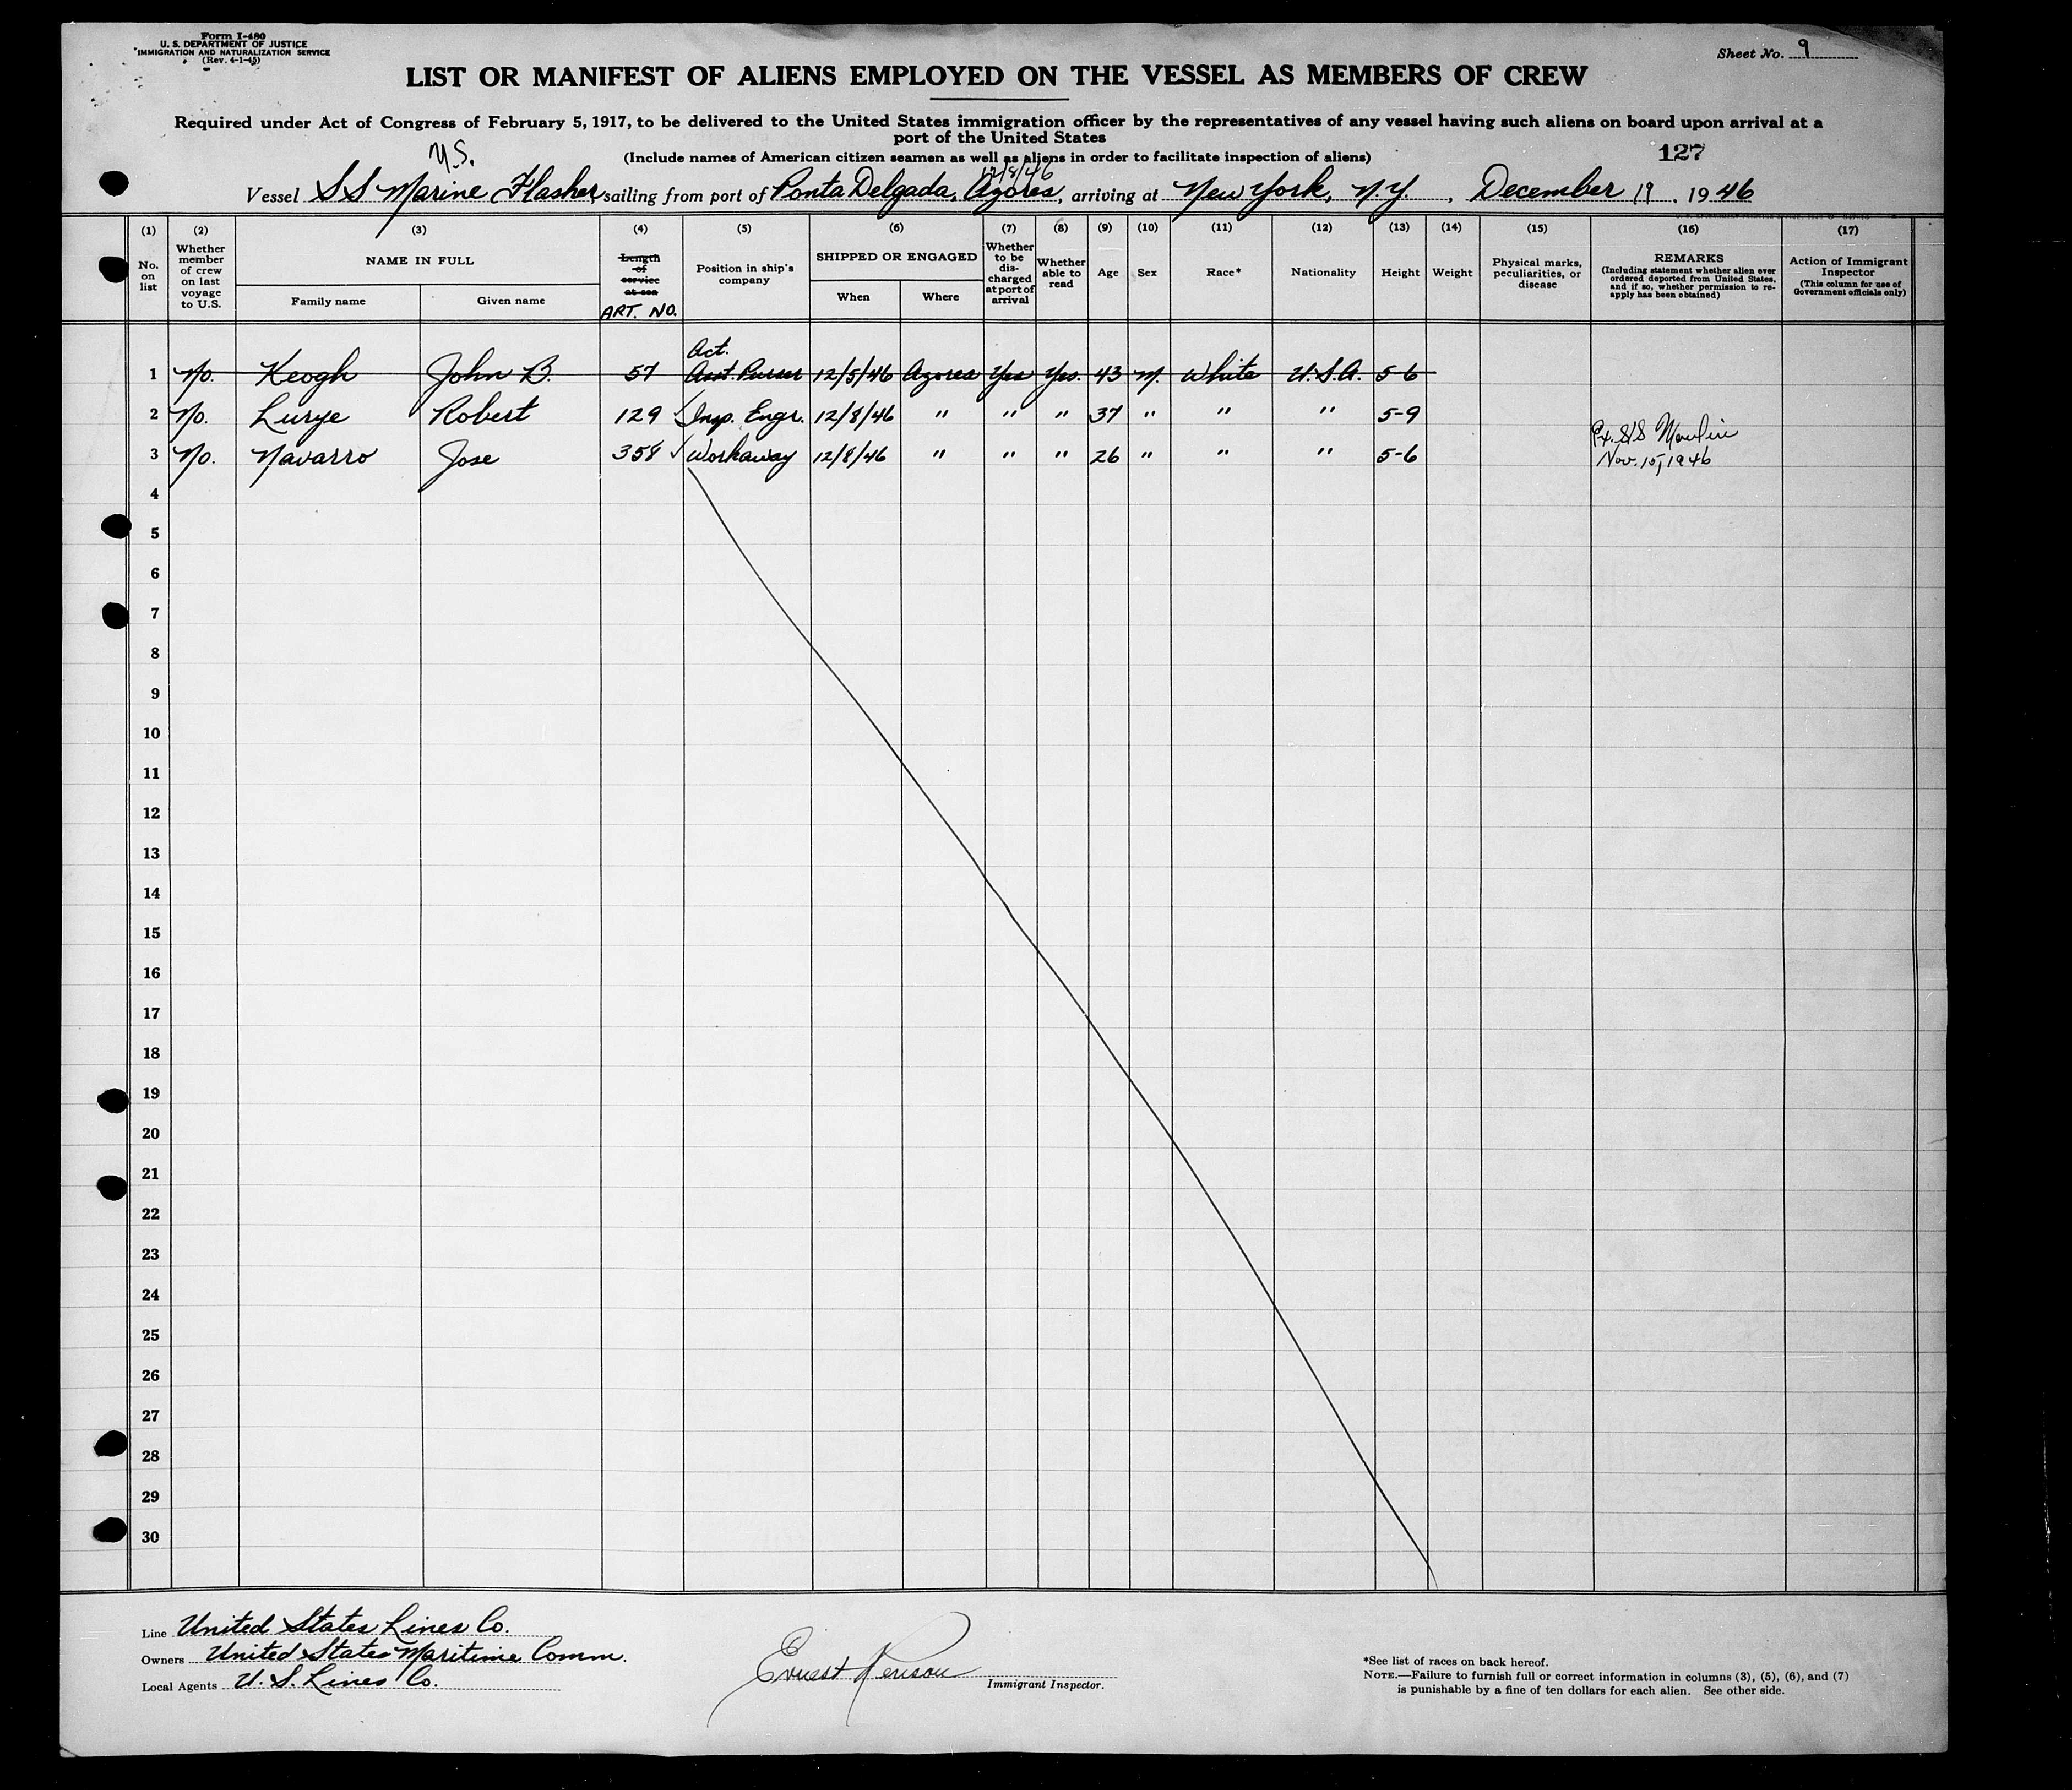 Form I-480
U. S. DEPARTMENT OF JUSTICE
IMMIGRATION AND NATURALIZATION SERVICE
(Rev. 4-1-45)
Sheet No. 9
LIST OR MANIFEST OF ALIENS EMPLOYED ON THE VESSEL AS MEMBERS OF CREW
Required under Act of Congress of February 5, 1917, to be delivered to the United States immigration officer by the representatives of any vessel having such aliens on board upon arrival at a
port of the United States
(Include names of American citizen seamen as well as aliens in order to facilitate inspection of aliens)
127
U.S.
12/8/46
Vessel SS Marine Flasher, sailing from port of Ponta Delgada, Azores, arriving at New York, N.Y., December 19, 1946
(1) (2) (3) (4) (5) (6) (7) (8) (9) (10) (11) (12) (13) (14) (15) (16) (17)
No. on list
Whether member of crew on last voyage to U.S.
NAME IN FULL
Family name
Given name
Length of service at sea
ART. NO.
Position in ship's company
SHIPPED OR ENGAGED
When
Where
Whether to be discharged at port of arrival
Whether able to read
Age
Sex
Race*
Nationality
Height
Weight
Physical marks, peculiarities, or disease
REMARKS
(Including statement whether alien ever ordered deported from United States, and if so, whether permission to reapply has been obtained)
Action of Immigrant Inspector
(This column for use of Government officials only)
Act.
1 No. Keogh John B. 57 Asst. Purser 12/5/46 Azores Yes Yes. 43 M. White U.S.A. 5-6
2 No. Lurye Robert 129 ✓ Insp. Engr. 12/8/46 " " " 37 " " " 5-9
3 No. Navarro Jose 358 ✓ Workaway 12/8/46 " " " 26 " " " 5-6 Ex. SS
Nov. 15, 1946
4
5
6
7
8
9
10
11
12
13
14
15
16
17
18
19
20
21
22
23
24
25
26
27
28
29
30
Line United States Lines Co.
Owners United States Maritime Comm.
Local Agents U. S. Lines Co.
Ernest
Immigrant Inspector.
*See list of races on back hereof.
NOTE.—Failure to furnish full or correct information in columns (3), (5), (6), and (7)
is punishable by a fine of ten dollars for each alien. See other side.